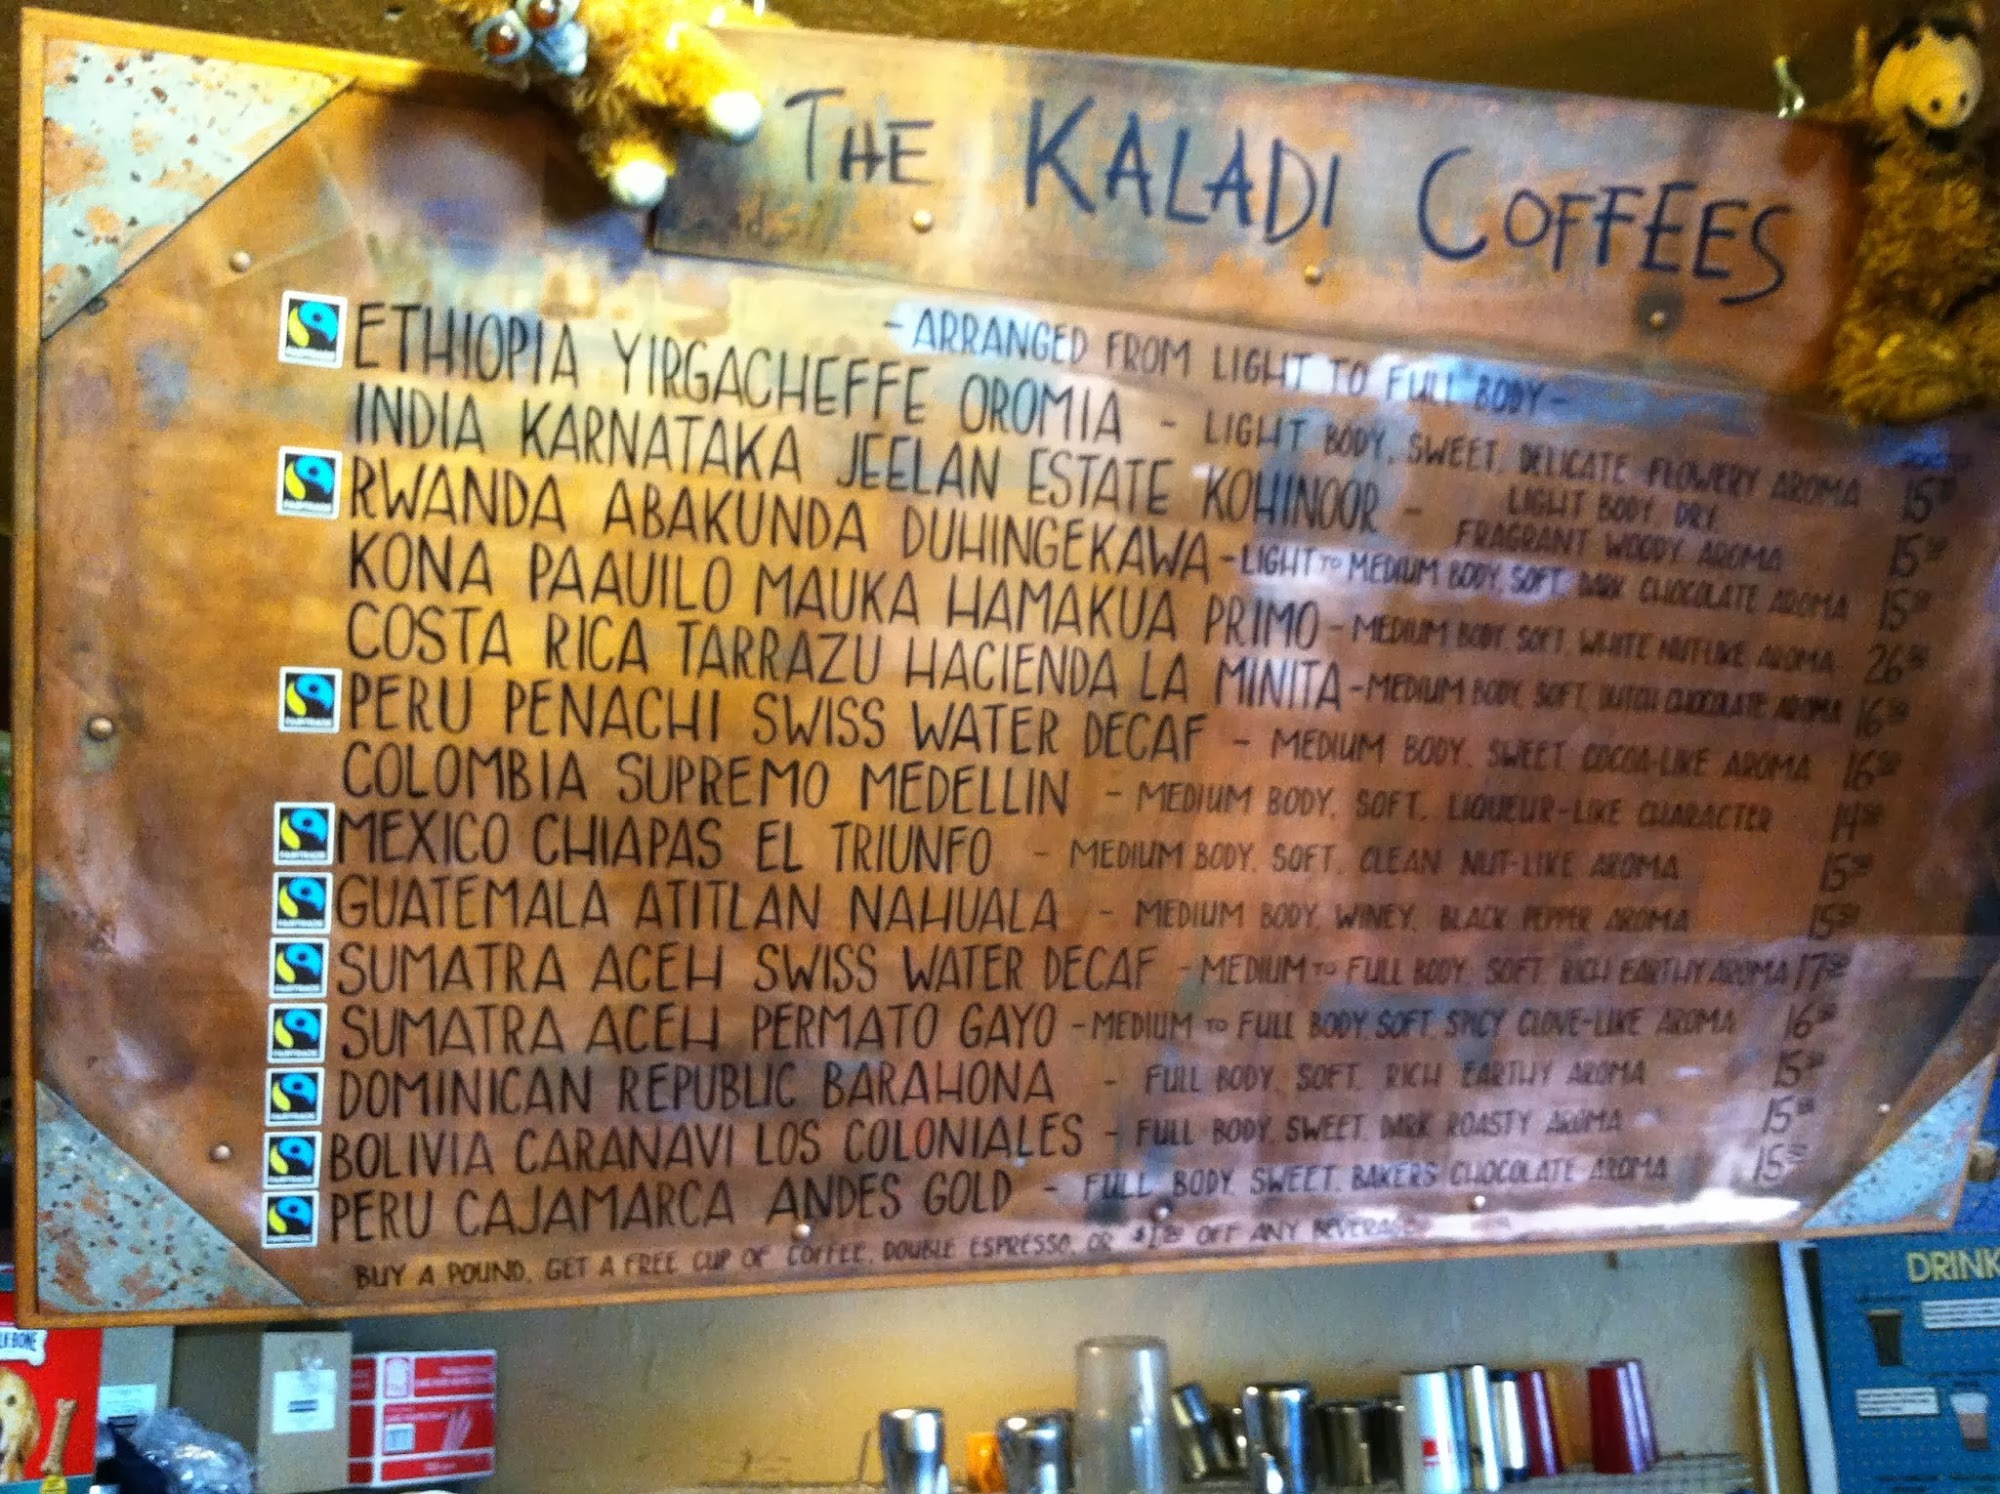 THE KALADI COFFEES
-ARRANGED FROM LIGHT TO FULL BODY-
ETHIOPIA YIRGACHEFFE OROMIA - LIGHT BODY, SWEET, DELICATE FLOWERY AROMA 15
INDIA KARNATAKA JEELAN ESTATE KOHINOOR - LIGHT BODY, DRY,
FRAGRANT WOODY AROMA 15
RWANDA ABAKUNDA DUHINGEKAWA - LIGHT TO MEDIUM BODY, SOFT, DARK CHOCOLATE AROMA 15
KONA PAAUILO MAUKA HAMAKUA PRIMO - MEDIUM BODY, SOFT, WHITE NUTLIKE AROMA 26
COSTA RICA TARRAZU HACIENDA LA MINITA - MEDIUM BODY, SOFT, DUTCH CHOCOLATE AROMA 16
PERU PENACHI SWISS WATER DECAF - MEDIUM BODY, SWEET, COCOA-LIKE AROMA 16
COLOMBIA SUPREMO MEDELLIN - MEDIUM BODY, SOFT, LIQUEUR-LIKE CHARACTER 14
MEXICO CHIAPAS EL TRIUNFO - MEDIUM BODY, SOFT, CLEAN NUT-LIKE AROMA 15
GUATEMALA ATITLAN NAHUALA - MEDIUM BODY, WINEY, BLACK PEPPER AROMA 15
SUMATRA ACEH SWISS WATER DECAF - MEDIUM TO FULL BODY, SOFT, RICH EARTHY AROMA 17
SUMATRA ACEH PERMATO GAYO - MEDIUM TO FULL BODY, SOFT, SPICY CLOVE-LIKE AROMA 16
DOMINICAN REPUBLIC BARAHONA - FULL BODY, SOFT, RICH EARTHY AROMA 15
BOLIVIA CARANAVI LOS COLONIALES - FULL BODY, SWEET, DARK ROASTY AROMA 15
PERU CAJAMARCA ANDES GOLD - FULL BODY, SWEET, BAKERS CHOCOLATE AROMA 15
BUY A POUND, GET A FREE CUP OF COFFEE, DOUBLE ESPRESSO, OR OFF ANY BEVERAGE
DRINK